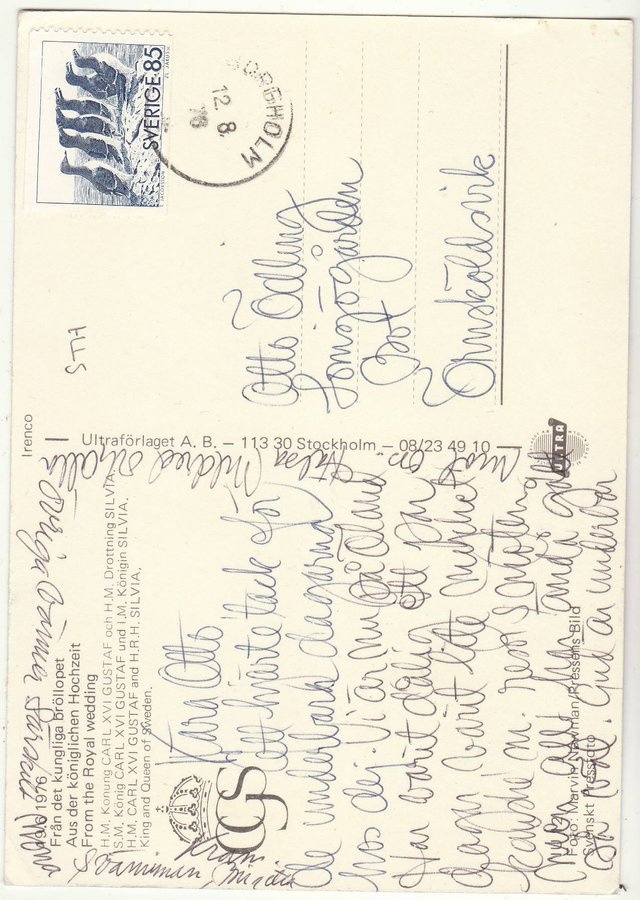 SVERIGE 85
BORGHOLM
12. 8. 76
STH
Otto Ödling
Tomsjögården
Box
Örnsköldsvik
Irenco
Ultraförlaget A. B. – 113 30 Stockholm – 08/23 49 10
ULTRA
19/6 1976
Från det kungliga bröllopet
Aus der königlichen Hochzeit
From the Royal wedding
H.M. Konung CARL XVI GUSTAF och H.M. Drottning SILVIA.
S.M. König CARL XVI GUSTAF und I.M. Königin SILVIA.
H.M. CARL XVI GUSTAF and H.R.H. SILVIA.
King and Queen of Sweden.
CGS
Foto: Marvin Newman/Pressens Bild
Svenskt Pressfoto
Kära Otto
ett hjärte tack för
de underbara dagarna
hos dej. Vi är nu på Öland
har varit dålig ett par
dagar varit lite
men allt har ändå gått
så bra. Gud är underbar
Hälsa Mildred
övriga vänner
Kram.